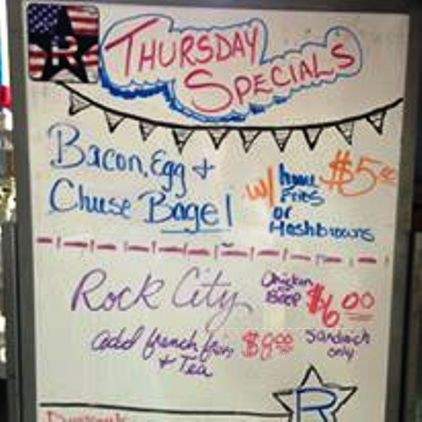 R
THURSDAY
SPECIALS
Bacon, Egg +
Chuse Bagel
w/ home
Fries
or
Hashbrowns
$5.00
Rock City
Chicken
Beef
$6.00
Sandwich
only
add french fries
+ Tea
$8.00
R